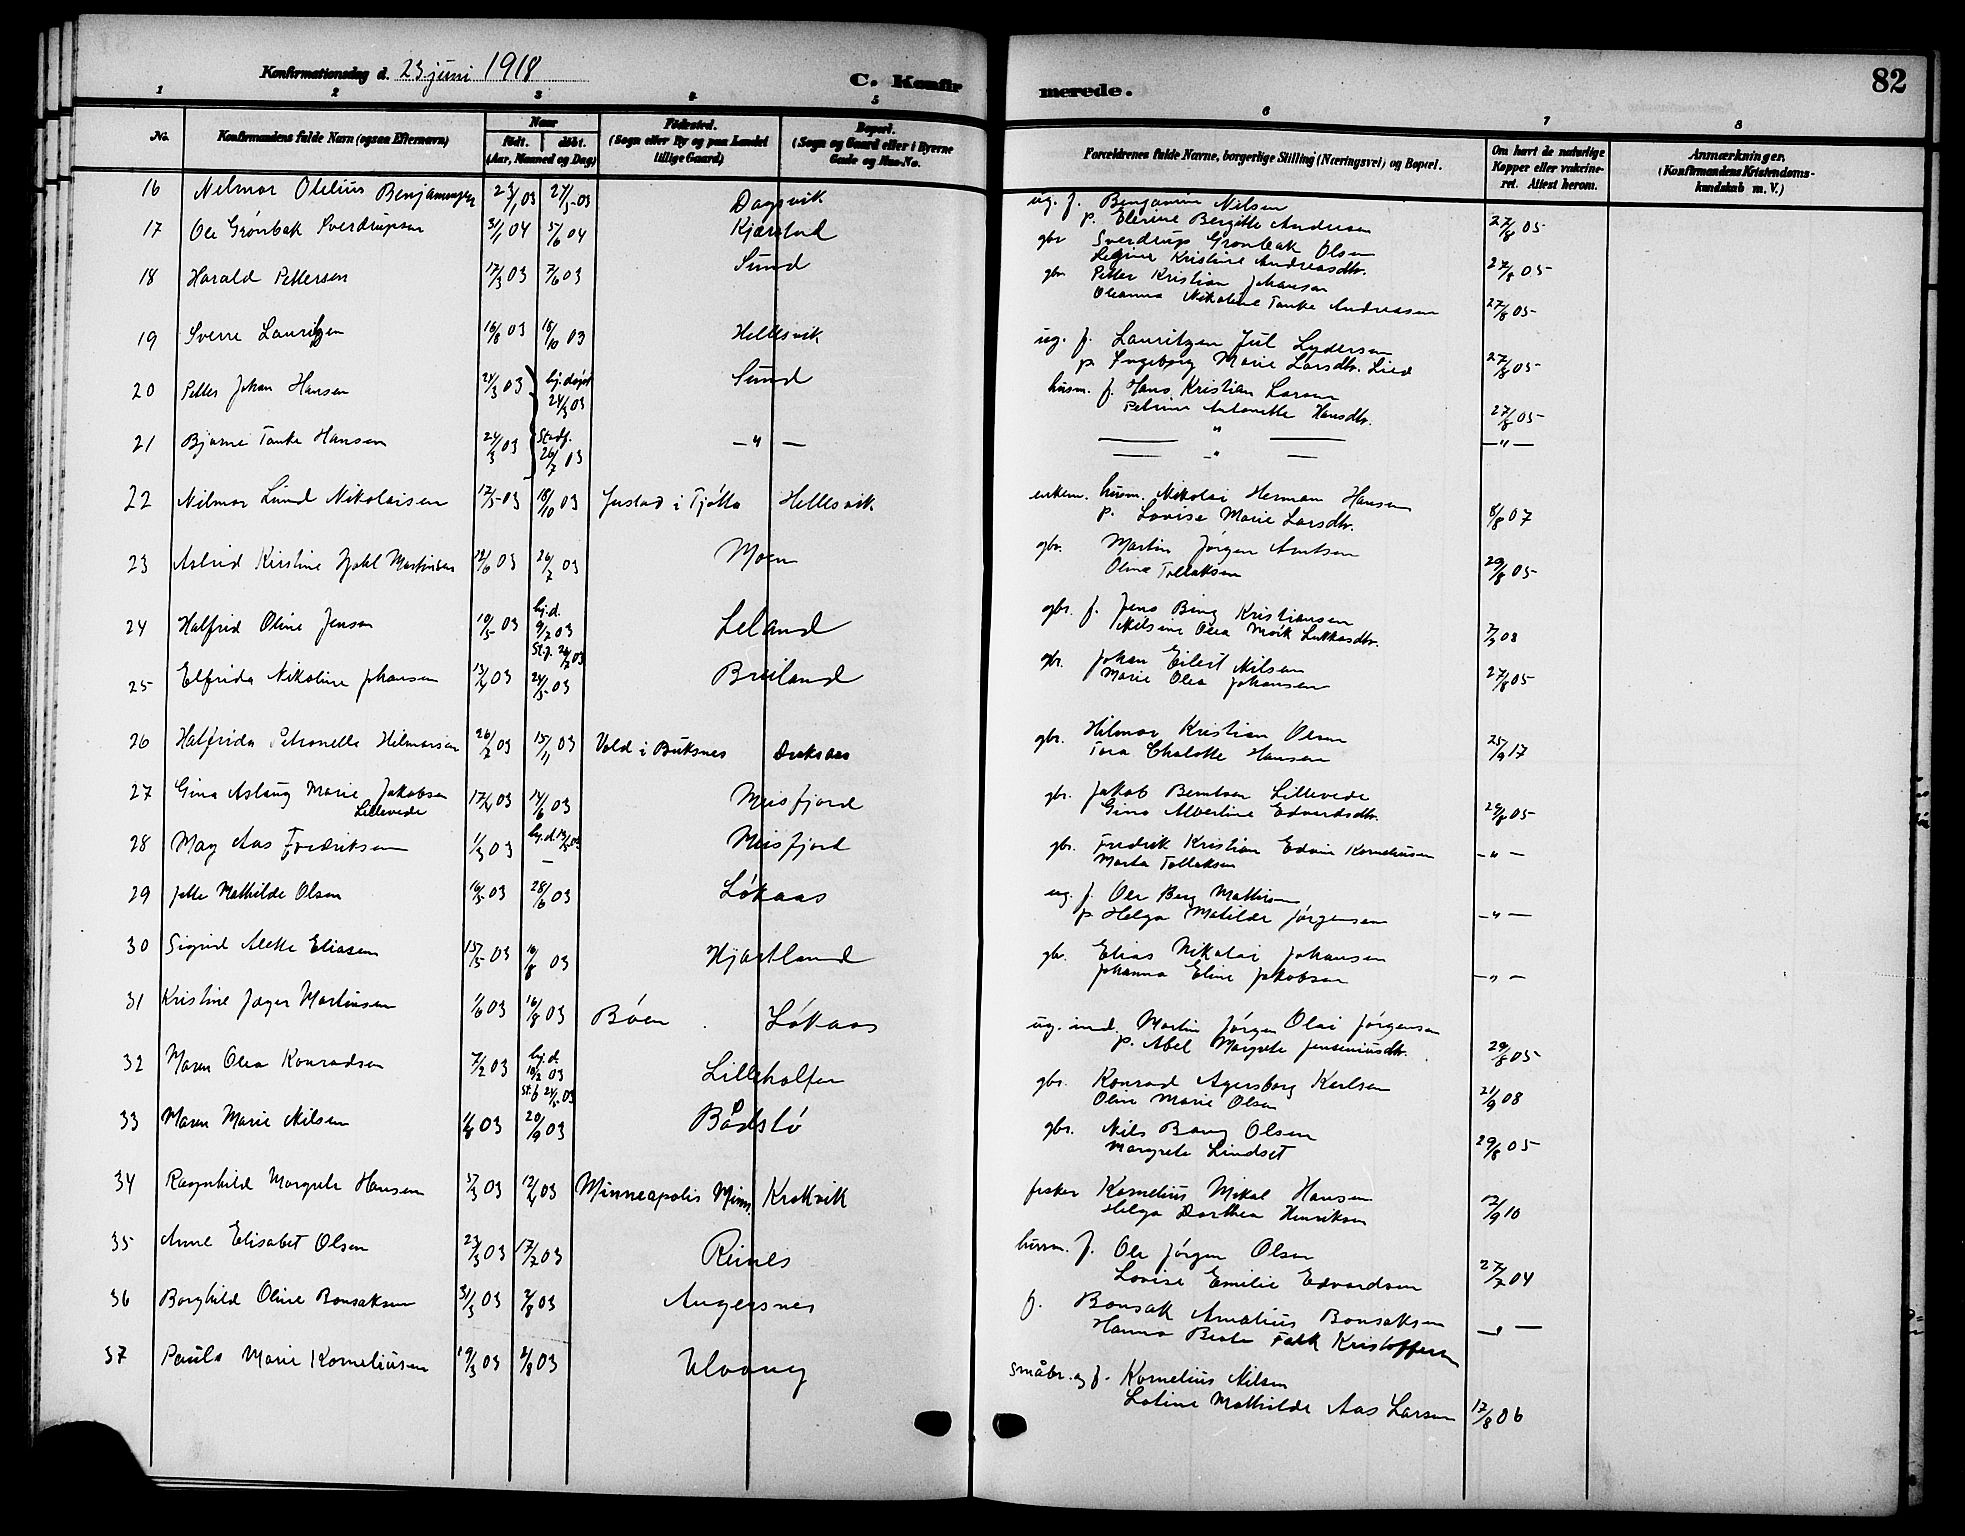 Konfirmationsdag d. 23 juni 1918
C. Konfirmerede.
82
1 2 3 4 5 6 7 8
No.
Konfirmandens fulde Navn (ogsaa Efternavn)
Naar
født. døbt.
(Aar, Maaned og Dag)
Fødested.
(Sogn eller By og paa Landet
tillige Gaard)
Bopæl.
(Sogn og Gaard eller i Byerne
Gade og Hus-No.
Forældrenes fulde Navne, borgerlige Stilling (Næringsvei) og Bopæl.
Om havt de naturlige
Kopper eller vakcine-
ret. Attest herom.
Anmærkninger.
(Konfirmandens Kristendoms-
kundskab m. V.)
16 Hilmar Otelius Benjaminsen 23/1 03 24/5 03 Dagsvik ug. f. Benjamin Nilsen
p. Elerine Bergitte Andersen 27/8 05
17 Ole Grønbek Sverdrupsen 31/1 04 5/6 04 Kjærstad gbr. Sverdrup Grønbek Olsen
Kristine Andreasdtr. 27/8 05
18 Harald Pettersen 17/3 03 7/6 03 Sund gbr. Petter Kristian Johansen
Oleanna Nikoline Tanke Andreassen 27/8 05
19 Sverre Lauritzen 16/8 03 18/10 03 Hellesvik ug. f. Lauritzen Jul Lydersen
p. Ingeborg Marie Larsdtr. Lied 27/8 05
20 Petter Johan Hansen 24/3 03 hj.døpt 24/3 03 Sund husm. f. Hans Kristian Larsen
Petrine Antonette Hansdtr. 27/8 05
21 Bjarne Tanke Hansen 24/3 03 Stadf. 26/7 03 — " — — " — — " —
— " —
22 Hilmar Lund Nikolaisen 17/5 03 18/10 03 Jrstad i Tjøtta Hellesvik enkem. husm. Nikolai Herman Hansen
p. Lovise Marie Larsdtr. 8/8 07
23 Astrid Kirstine Martinsen 18/6 03 26/7 03 Moen gbr. Martin Jørgen Arntsen
Oline Tollaksen 29/8 05
24 Halfrid Oline Jensen 10/5 03 hj.d. 9/7 03 Leland gbr. f. Jens Bing Kristiansen
St.f. 26/7 03 Nilsine Olea Mørk Lukkasdtr. 7/9 08
25 Elfrida Nikoline Johansen 13/4 03 24/5 03 Breiland gbr. Johan Eilert Nilsen
Marie Olea Johansen 27/8 05
26 Halfrida Petronelle Hilmarsen 26/7 03 15/11 03 Vold i Buksnes gbr. Hilmar Kristian Olsen
Tora Chalotte Hansen 25/9 17
27 Gina Aslaug Marie Jakobsen 17/4 03 14/6 03 Meisfjord gbr. Jakob Berntsen Lillevede
Lillevede Gina Albertine Edvardsdtr. 29/8 05
28 May Aas Fredriksen 1/3 03 hj.d. 13/5 03 Meisfjord gbr. Fredrik Kristian Edvin Korneliusen
— Marta Tollaksen — " —
29 Jette Mathilde Olsen 16/5 03 28/6 03 Løkaas ug. f. Ole Berg Mathisen
p. Helga Matilde Jørgensen — " —
30 Sigrid Alette Eliasen 15/5 03 16/8 03 Hjartland gbr. Elias Nikolai Johansen
Johanna Eline Jakobsen — " —
31 Kristine Jæger Martinsen 1/6 03 16/8 03 Bøen Løkaas ug. ind. Martin Jørgen Olai Jørgensen
p. Abel Margrete Jenseniusdtr. 29/8 05
32 Maren Olea Konradsen 7/2 03 hj.d. 18/2 03 Lillehalfen gbr. Konrad Agersborg Karlsen
st.f. 24/5 03 Oline Marie Olsen 21/9 08
33 Maren Marie Nilsen 1/8 03 20/9 03 Bådslø gbr. Nils Bang Olsen
Margrete Lindset 29/8 05
34 Ragnhild Margrete Hansen 5/3 03 12/4 03 Minneapolis Minn. Krokvik fisker Kornelius Mikal Hansen
Helga Dorthea Henriksen 12/9 10
35 Anne Elisabet Olsen 23/3 03 17/7 03 Reines husm. f. Ole Jørgen Olsen
Lovise Emilie Edvardsen 27/7 04
36 Borghild Oline Bonsaksen 31/3 03 2/8 03 Angersnes f. Bonsak Amatius Bonsaksen
Hanna Beate Falk Kristoffersen — " —
37 Paula Marie Korneliusen 19/3 03 2/8 03 Ulvang småbr. og f. Kornelius Nilsen
Lotine Mathilde Aas Larsen 17/8 06